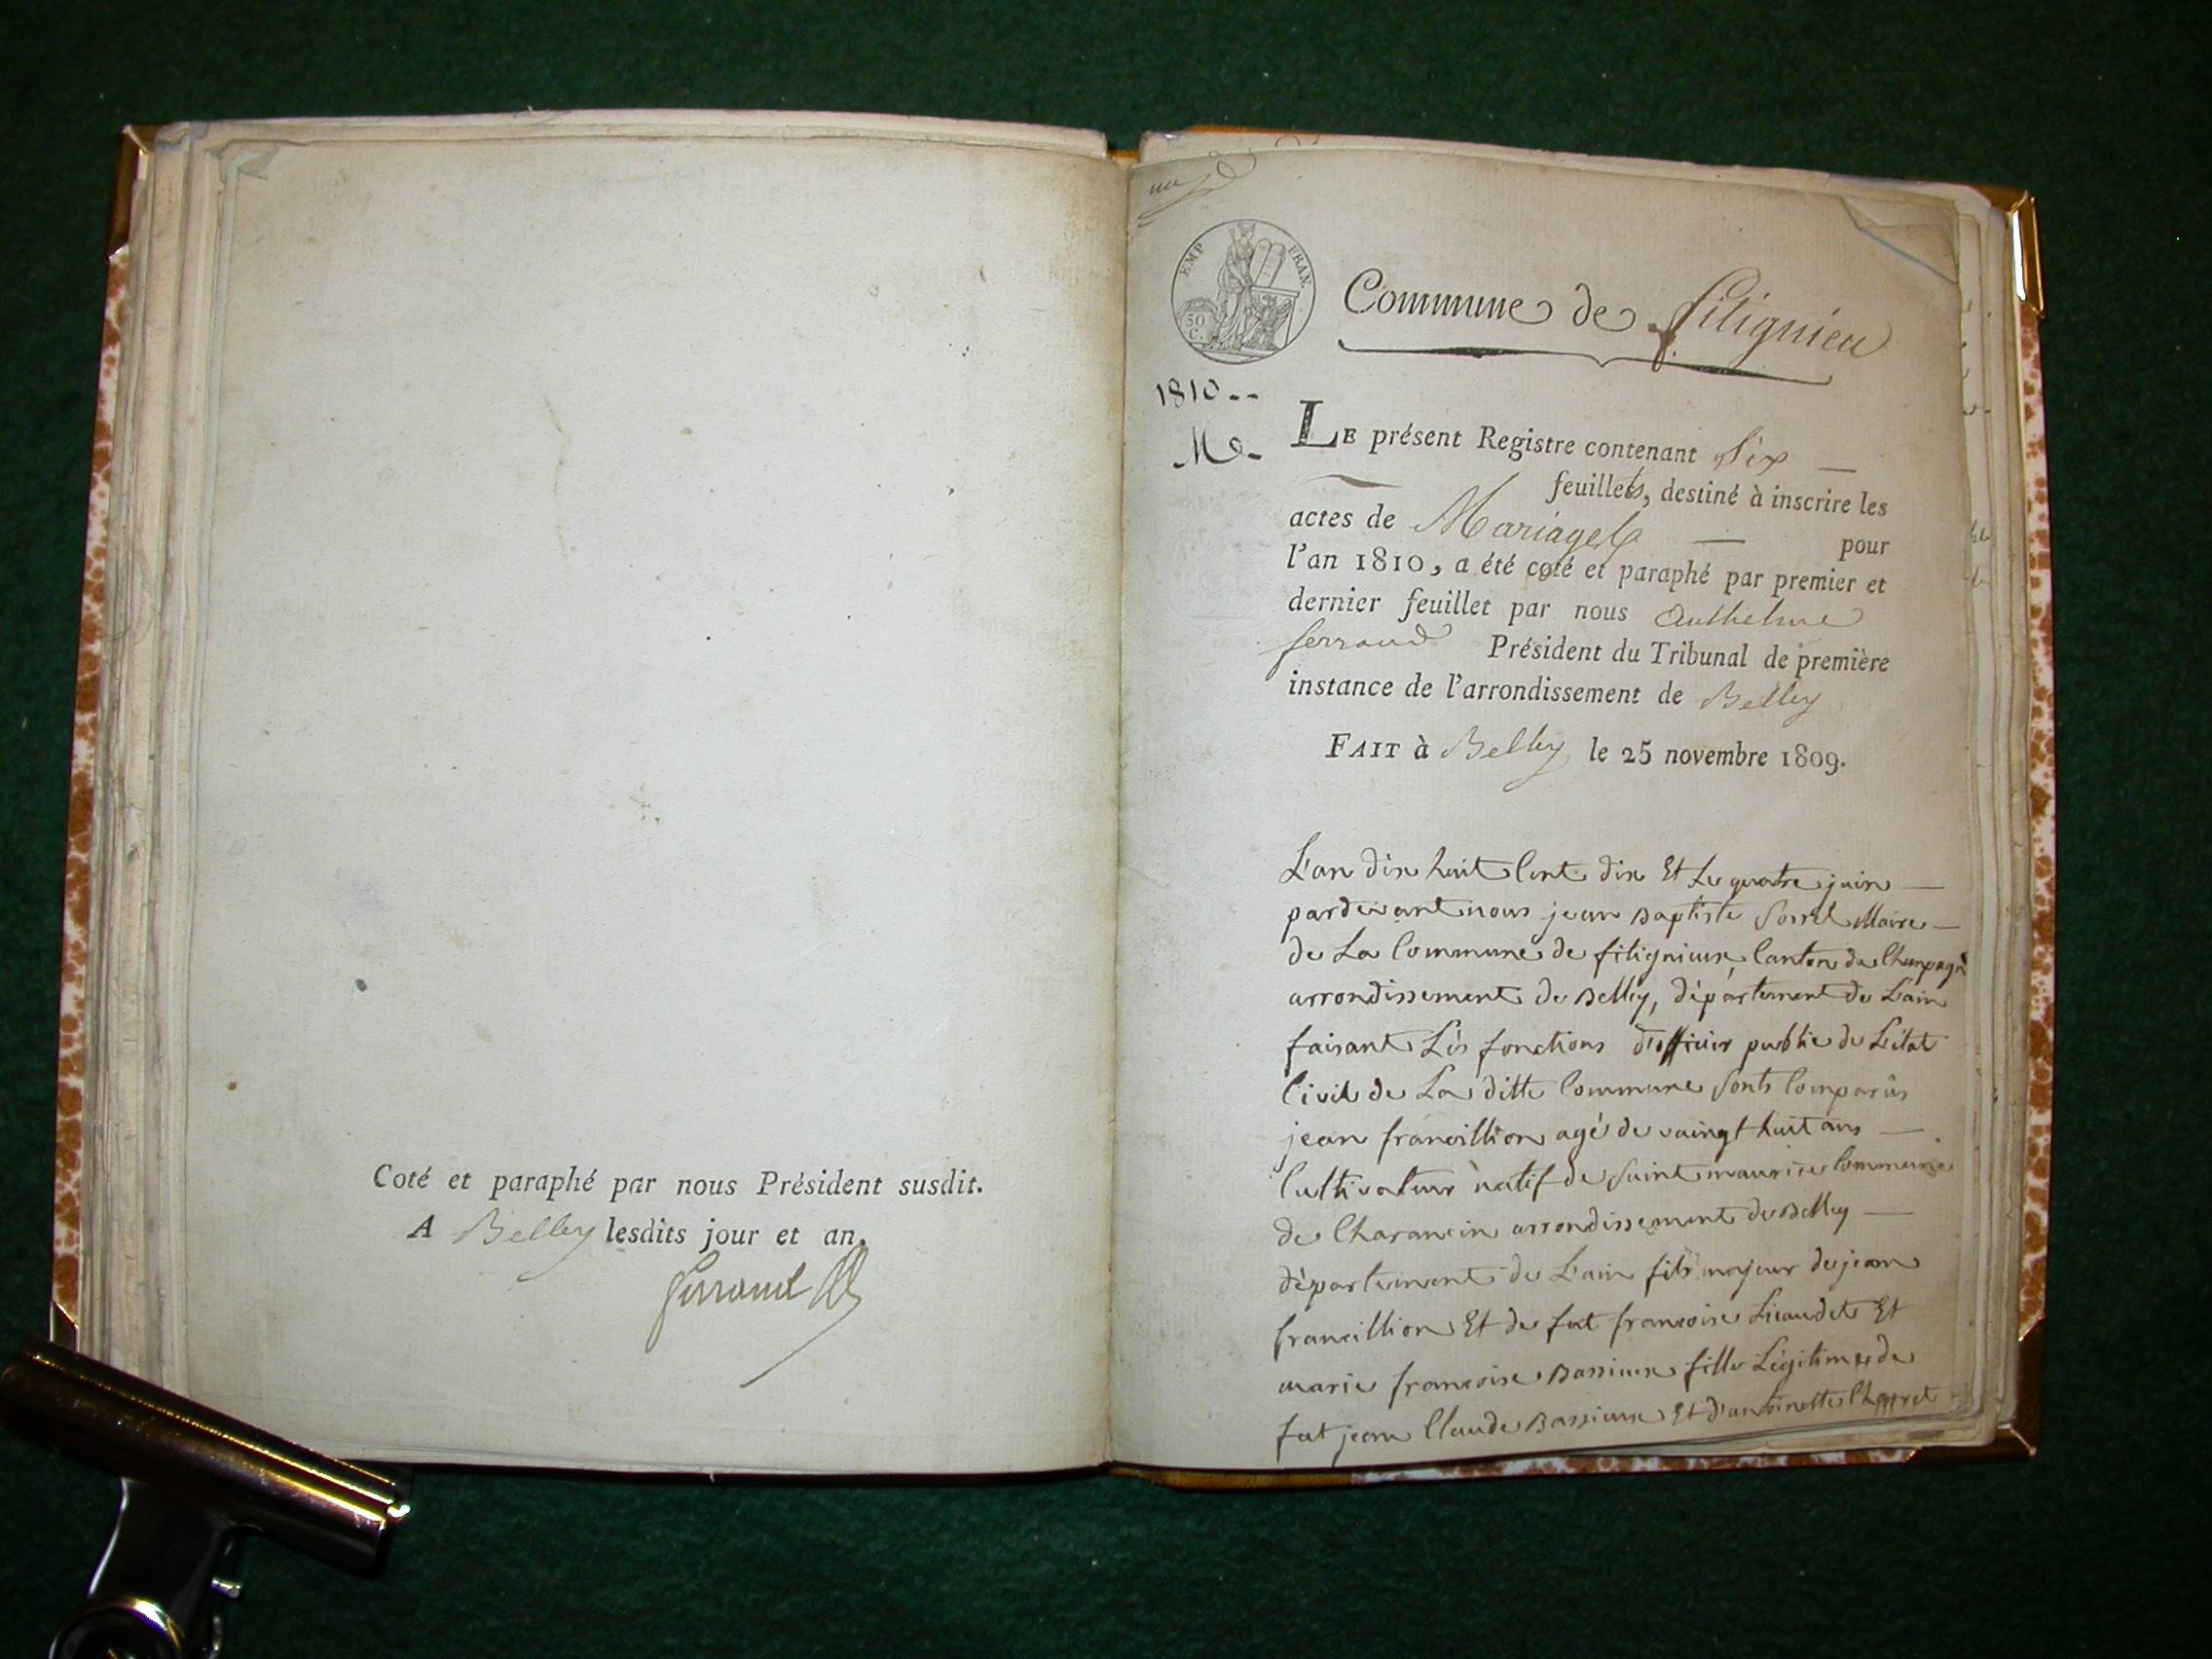 Coté et paraphé par nous Président susdit.
A Belley lesdits jour et an.
Ferrand
un
EMP FRAN.
50
C.
Commune de fitignieu
1810--
M-
LE présent Registre contenant Six —
feuillets, destiné à inscrire les
actes de Mariages — pour
l'an 1810, a été coté et paraphé par premier et
dernier feuillet par nous Anthelme
ferrand Président du Tribunal de première
instance de l'arrondissement de Belley
FAIT à Belley le 25 novembre 1809.
L'an dix huit Cent dix Et Le quatre juin —
pardevant nous jean Baptiste Sorrel Maire —
de La Commune de fitignieux, Canton de Champagn
arrondissement de Belley, département de L'ain
faisant Lés fonctions d'officier public de L'état
Civil de La ditte Commune Sonts Comparûs
jean francillion agé de vaingt huit ans —
Cultivateur natif de Saint maurice Commune
de Charancin arrondissement de Belley —
département de L'ain fils majeur de jean
francillion Et de fut francoise Et
marie francoise Bassieux fille Légitime de
fut jean Claude Bassieux Et d'antoinette